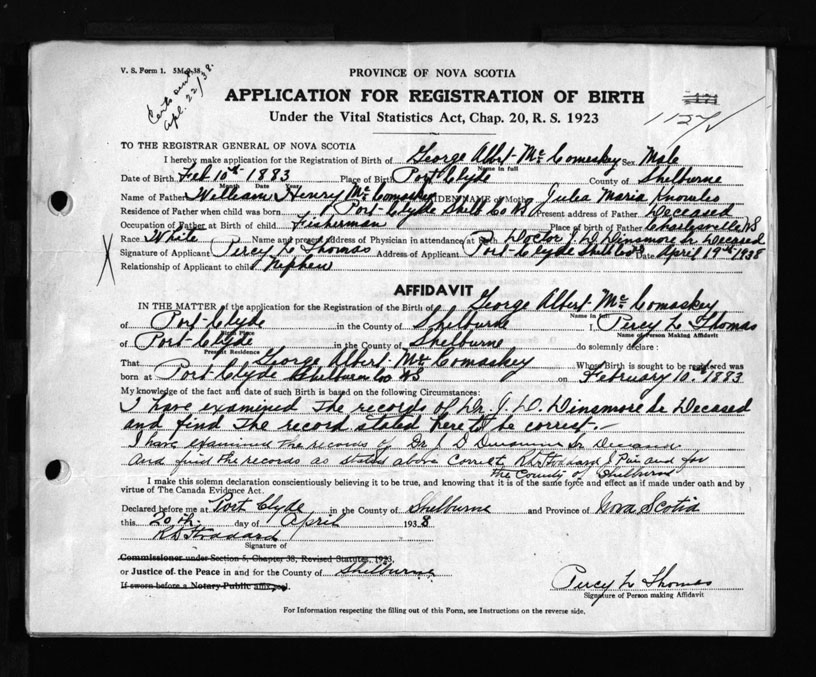 V. S. Form 1. 5M-9-38
Certs sent
Apl. 22/38.
PROVINCE OF NOVA SCOTIA
APPLICATION FOR REGISTRATION OF BIRTH
Under the Vital Statistics Act, Chap. 20, R. S. 1923
TO THE REGISTRAR GENERAL OF NOVA SCOTIA
I hereby make application for the Registration of Birth of George Albert McComaskey Sex Male
Name in full
Date of Birth Feb 10th 1883 Place of Birth Port Clyde County of Shelburne
Month Date Year
Name of Father William Henry McComaskey MAIDEN NAME of Mother Julia Maria Knowles
Residence of Father when child was born Port Clyde Shelb Co NS Present address of Father Deceased
Occupation of Father at Birth of child Fisherman Place of birth of Father Charlesville NS
Race White Name and present address of Physician in attendance at Birth Doctor J. D. Dinsmore Sr Deceased
Signature of Applicant Percy L Thomas Address of Applicant Port Clyde Shelb Co NS Date April 19th 1938
Relationship of Applicant to child Nephew
AFFIDAVIT
IN THE MATTER of the application for the Registration of the Birth of George Albert McComaskey
Name in full
of Port Clyde in the County of Shelburne I, Percy L Thomas
Birth Place Name of Person Making Affidavit
of Port Clyde in the County of Shelburne do solemnly declare:
Present Residence
That George Albert McComaskey Whose Birth is sought to be registered was
born at Port Clyde Shelburne Co NS on February 10th 1883
My knowledge of the fact and date of such Birth is based on the following Circumstances:
I have examined the records of Dr. J. D. Dinsmore Sr Deceased
and find the record stated here to be correct.-
I have examined the records of Dr J D Dinsmore Sr Deceased
And find the records as stated above Correct, R D Stoddard J P in and for
the County of Shelburne
I make this solemn declaration conscientiously believing it to be true, and knowing that it is of the same force and effect as if made under oath and by
virtue of The Canada Evidence Act.
Declared before me at Port Clyde in the County of Shelburne and Province of Nova Scotia
this 20th day of April 1938
R D Stoddard
Signature of
Commissioner under Section 5, Chapter 38, Revised Statutes, 1923,
or Justice of the Peace in and for the County of Shelburne
If sworn before a Notary Public affix seal.
Percy L Thomas
Signature of Person making Affidavit
For Information respecting the filling out of this Form, see Instructions on the reverse side.